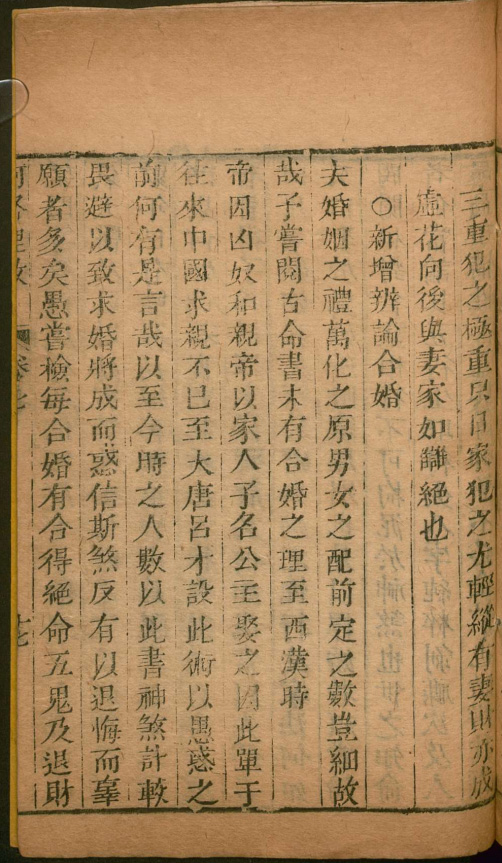 三重犯之極重只日家犯之尤輕縱有妻財亦成
虛花向後與妻家如讎絕也
○新增辨論合婚
夫婚姻之禮萬化之原男女之配前定之數豈細故
哉予嘗閱古命書未有合婚之理至西漢時
帝因凶奴和親帝以家人子名公主娶之因此單于
往來中國求親不已至大唐呂才設此術以愚惑之
前何有是言哉以至今時之人數以此書神煞計較
畏避以致求婚將成而惑信斯煞反有以退悔而辜
願者多矣愚嘗檢每合婚有合得絕命五鬼及退財
河洛理數 卷七 七